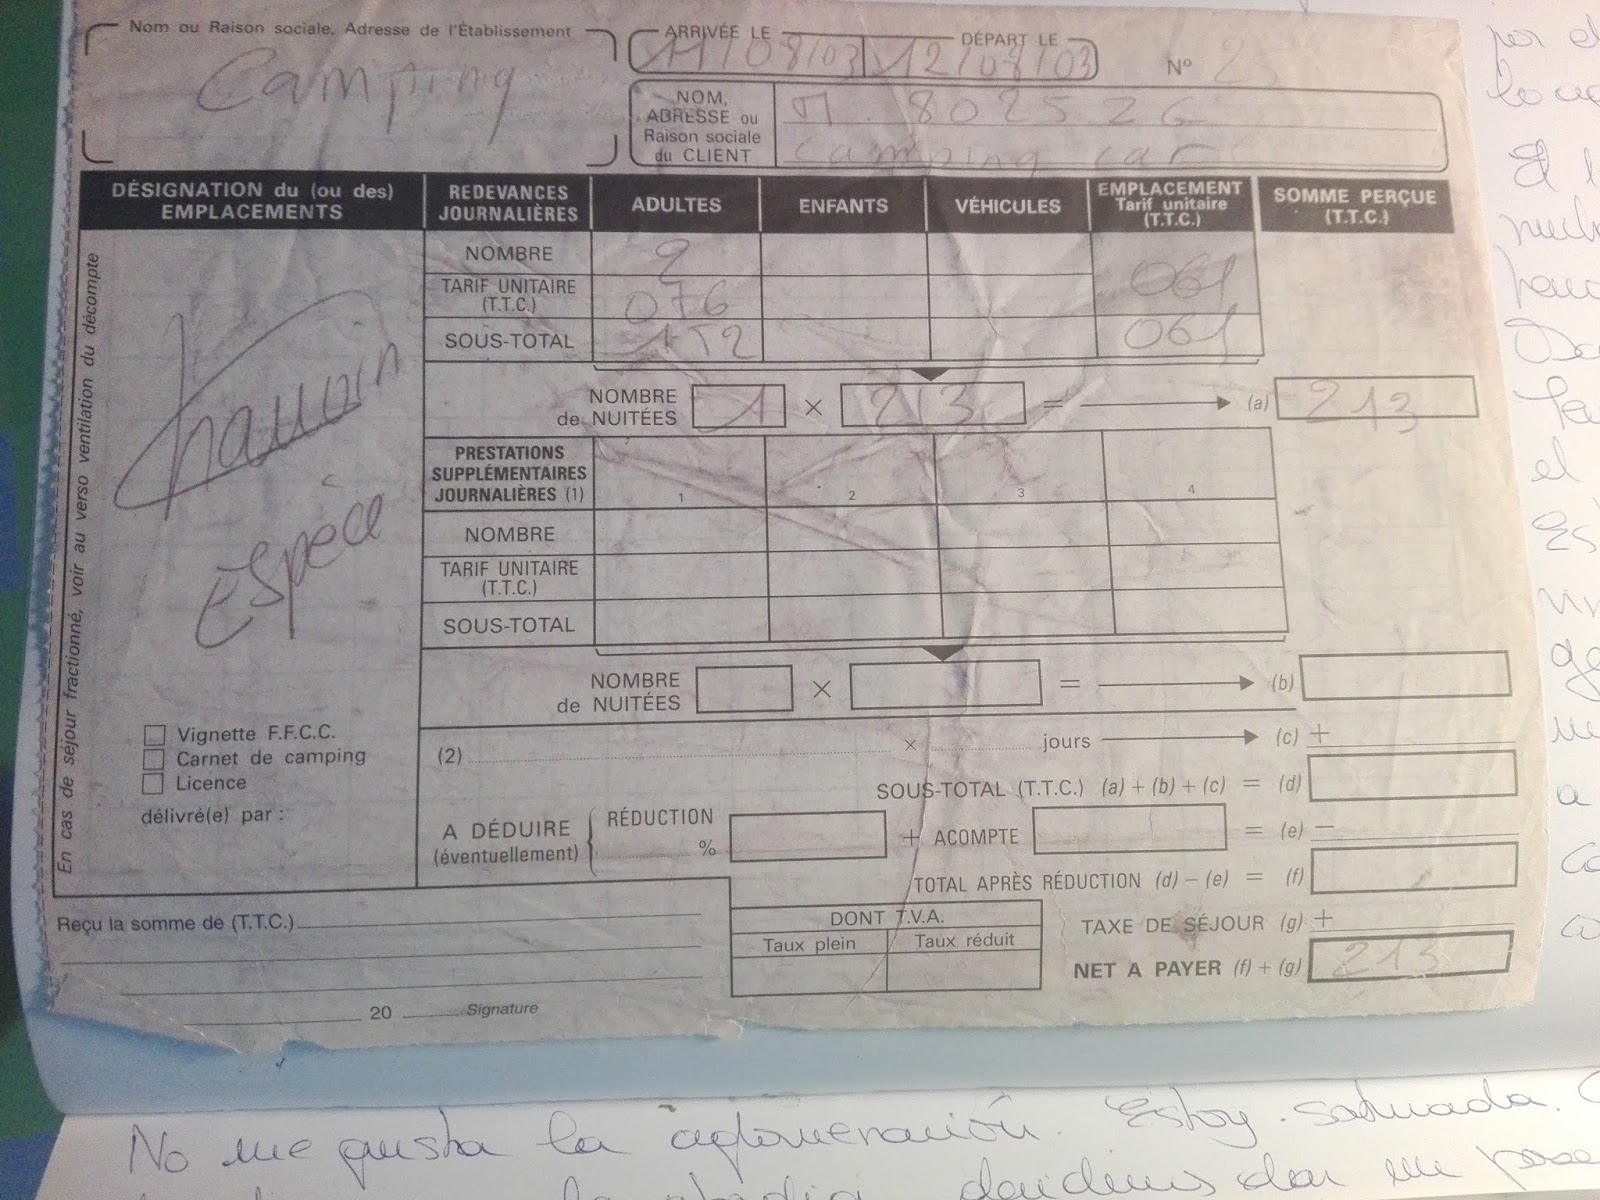 Nom ou Raison sociale, Adresse de l'Établissement
Camping
ARRIVÉE LE
DÉPART LE
11/08/03
12/08/03
N° 25
NOM,
ADRESSE ou
Raison sociale
du CLIENT
M. 8025 ZG
camping car
DÉSIGNATION du (ou des)
EMPLACEMENTS
REDEVANCES
JOURNALIÈRES
ADULTES
ENFANTS
VÉHICULES
EMPLACEMENT
Tarif unitaire
(T.T.C.)
SOMME PERÇUE
(T.T.C.)
NOMBRE
2
TARIF UNITAIRE
(T.T.C.)
076
061
SOUS-TOTAL
152
061
NOMBRE
de NUITÉES
1 × 213 = (a) 213
PRESTATIONS
SUPPLÉMENTAIRES
JOURNALIÈRES (1)
1 2 3 4
NOMBRE
TARIF UNITAIRE
(T.T.C.)
SOUS-TOTAL
NOMBRE
de NUITÉES
× = (b)
espèce
En cas de séjour fractionné, voir au verso ventilation du décompte
Vignette F.F.C.C.
Carnet de camping
Licence
délivré(e) par :
(2) × jours (c) +
SOUS-TOTAL (T.T.C.) (a) + (b) + (c) = (d)
A DÉDUIRE
(éventuellement)
RÉDUCTION
%
+ ACOMPTE = (e) −
TOTAL APRÈS RÉDUCTION (d) − (e) = (f)
Reçu la somme de (T.T.C.)
DONT T.V.A.
Taux plein
Taux réduit
TAXE DE SÉJOUR (g) +
NET A PAYER (f) + (g) 213
20 Signature
por el
El
el
a
No me gusta la aglomeración. Estoy saturada.